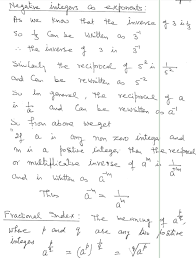 Negative integers as exponents:
As we know that the inverse of 3 is ⅓
So ⅓ can be written as 3⁻¹
∴ the inverse of 3 is 3⁻¹
Similarly the reciprocal of 5² is 1/5²
and can be rewritten as 5⁻²
So in general, the reciprocal of a
is 1/a and can be rewritten as a⁻¹
So from above we get
If a is any non zero integer and
m is a positive integer then the reciprocal
or multiplicative inverse of aᵐ is 1/aᵐ
and is written as a⁻ᵐ
Thus a⁻ᵐ = 1/aᵐ
Fractional Index: The meaning of a^(p/q),
where p and q are any two positive
integers
a^(p/q) = (a^p)^(1/q) = q√a^p